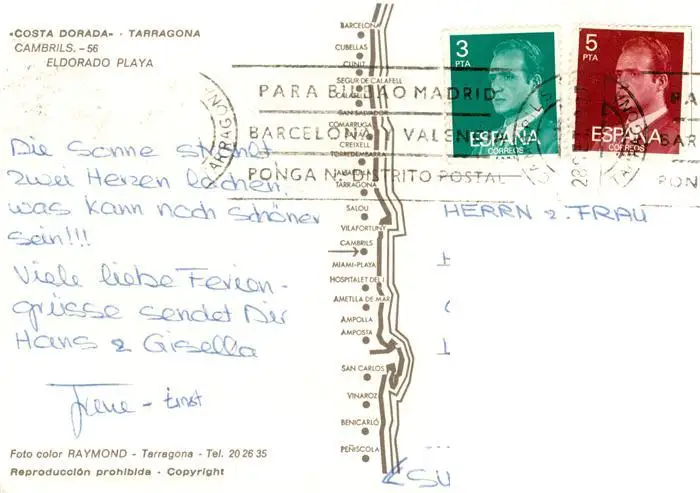 «COSTA DORADA» - TARRAGONA
CAMBRILS. - 56
ELDORADO PLAYA
Die Sonne strahlt
zwei Herzen lachen,
was kann noch schöner
sein!!!
Viele liebe Ferien-
grüsse sendet Dir
Hans & Gisella
Irene - Ernst
Foto color RAYMOND - Tarragona - Tel. 20 26 35
Reproducción prohibida - Copyright
BARCELONA
CUBELLAS
CUNIT
SEGUR DE CALAFELL
CALAFELL
SAN SALVADOR
COMARRUGA
CREIXELL
TORREDEMBARRA
ALTAFULLA
TARRAGONA
SALOU
VILAFORTUNY
CAMBRILS
MIAMI-PLAYA
HOSPITALET DEL I.
AMETLLA DE MAR
AMPOLLA
AMPOSTA
SAN CARLOS
VINAROZ
BENICARLÓ
PEÑISCOLA
3
PTA
ESPAÑA
CORREOS
5
PTA
ESPAÑA
CORREOS
PARA BILBAO MADRID
BARCELONA Y VALENCIA
PONGA Nº DISTRITO POSTAL
TARRAGONA
HERRN & FRAU